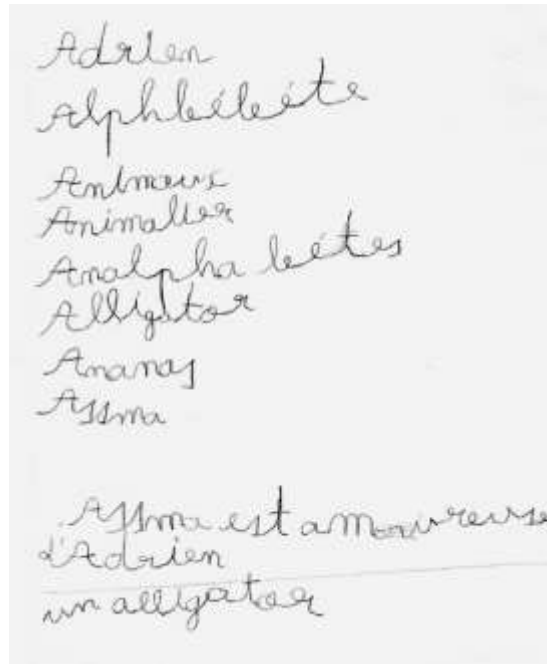 Adrien
Alphbébéte
Animaux
Animalier
Analpha bétes
Alligator
Ananas
Assma
Assma est amoureuse
d'Adrien
un alligator